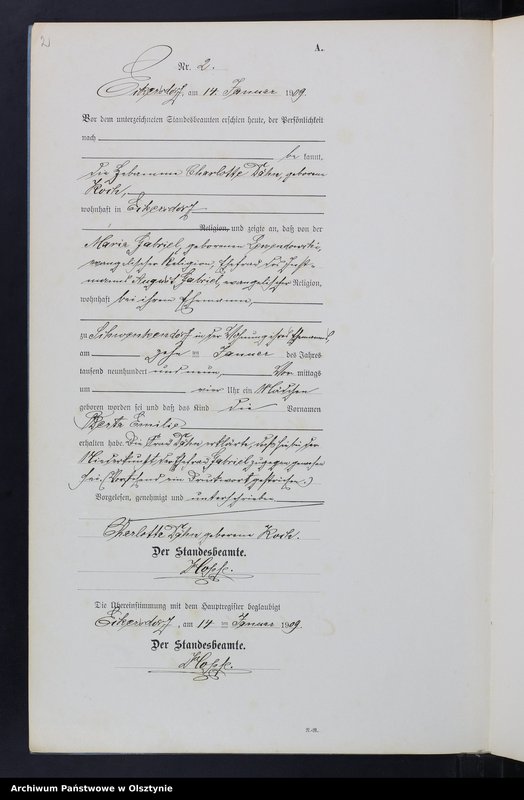 2
A.
Nr. 2.
Eckersdorf, am 14. Januar 1909.
Vor dem unterzeichneten Standesbeamten erschien heute, der Persönlichkeit
nach
be kannt,
die Hebamme Charlotte Dähn, geborene
Koch,
wohnhaft in Eckersdorf
Religion, und zeigte an, daß von der
Maria Gabriel, geborenen Lewandowski,
evangelischer Religion, Ehefrau des Inst-
manns August Gabriel, evangelischer Religion,
wohnhaft bei ihrem Ehemann,
zu Schwenkendorf in der Wohnung ihres Ehemanns,
am zehn ten Januar des Jahres
tausend neunhundert und neun, Vor mittags
um vier Uhr ein Mädchen
geboren worden sei und daß das Kind die Vornamen
Berta Emilie
erhalten habe. Die Frau Dähn erklärte, daß sie bei der
Niederkunft der Ehefrau Gabriel zugegen gewesen
sei. (Vorstehend ein Druckwort gestrichen.)
Vorgelesen, genehmigt und unterschrieben
Charlotte Dähn geborene Koch.
Der Standesbeamte.
Hoppe.
Die Übereinstimmung mit dem Hauptregister beglaubigt
Eckersdorf, am 14 ten Januar 1909.
Der Standesbeamte.
Hoppe.
Archiwum Państwowe w Olsztynie